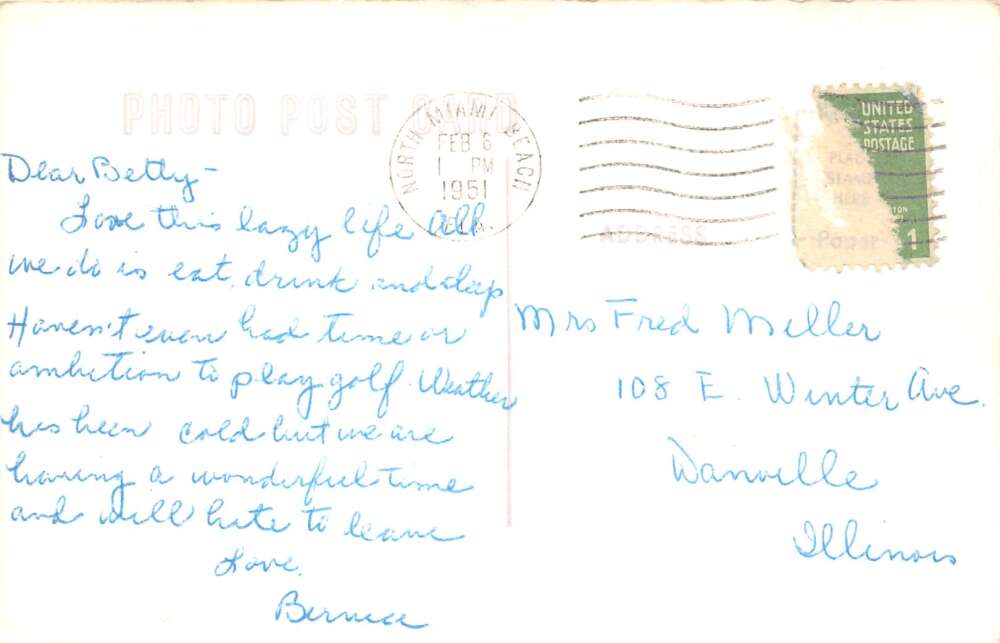 PHOTO POST CARD
NORTH MIAMI BEACH
FEB 6
1 PM
1951
UNITED
STATES
POSTAGE
PLACE
STAMP
HERE
TON
Paper
1
ADDRESS
Dear Betty –
Love this lazy life All
we do is eat, drink and sleep
Haven't even had time or
ambition to play golf. Weather
has been cold but we are
having a wonderful time
and will hate to leave
Love,
Bernice
Mrs Fred Miller
108 E. Winter Ave.
Danville
Illinois